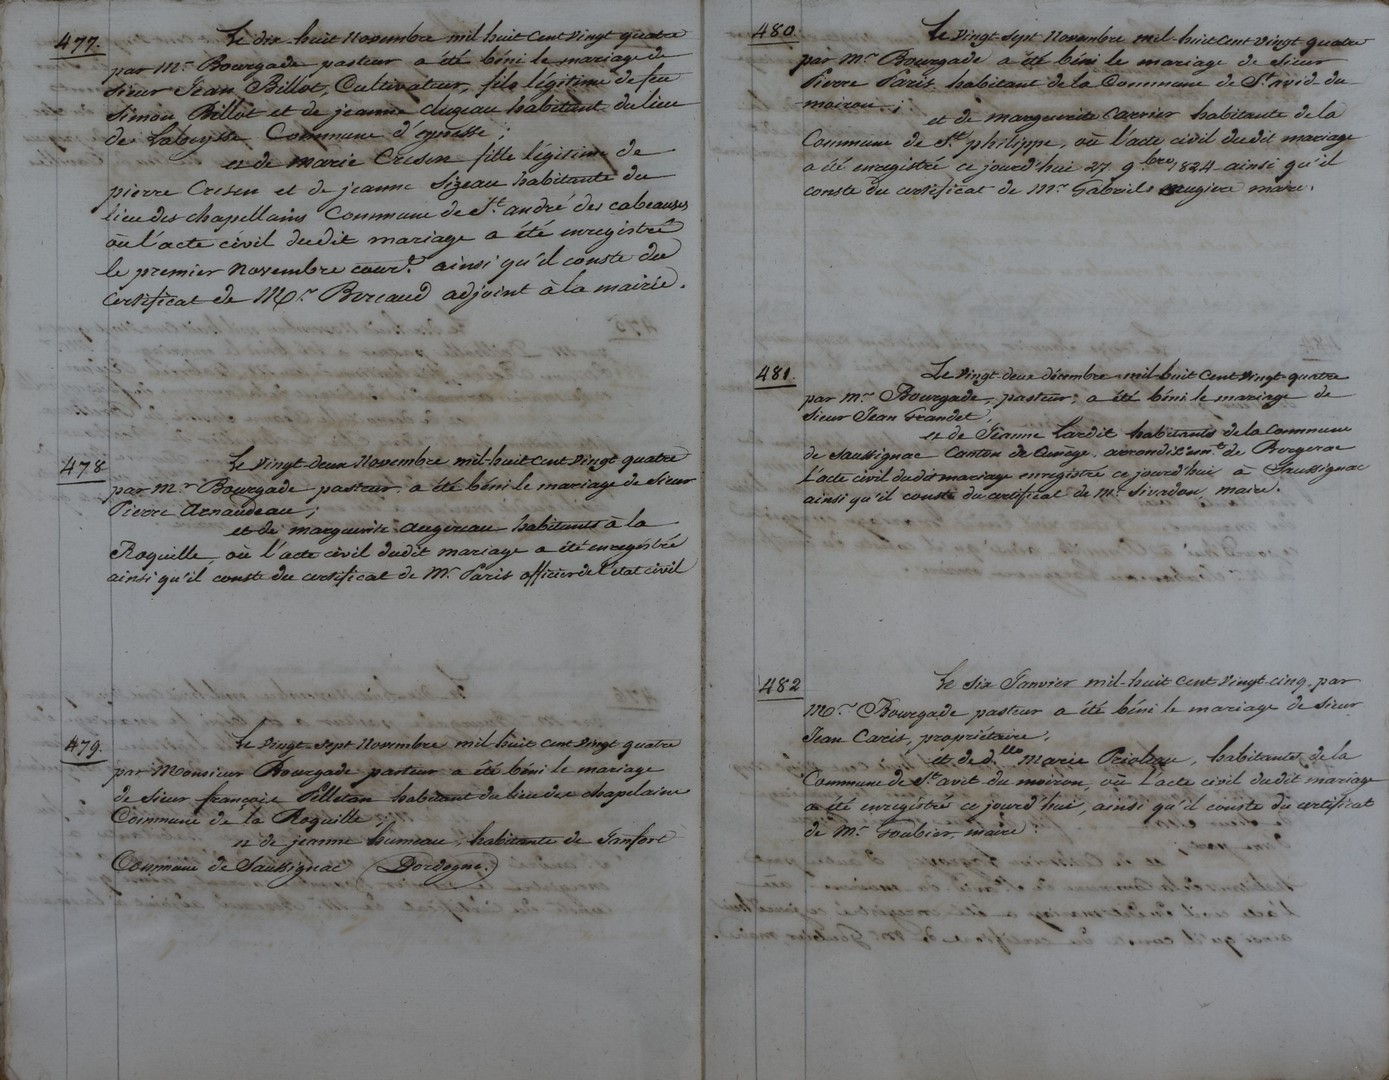 477.
Le dix-huit Novembre mil huit cent vingt quatre
par Mr Bourgade pasteur a été béni le mariage de
Sieur Jean Billot, Cultivateur, fils légitime de feu
Simon Billot et de jeanne habitant du lieu
de Commune d'eynesse ;
et de Marie Cresen fille légitime de
pierre Cresen et de jeanne Sizeau habitante du
lieu des chapellains Commune de St andré des cabeauses
où l'acte civil dudit mariage a été enregistré
le premier Novembre courr.t ainsi qu'il conste du
Certificat de Mr adjoint à la mairie.
478
Le vingt deux Novembre mil-huit cent vingt quatre
par Mr Bourgade pasteur a été béni le mariage de Sieur
Pierre Arnaudeau ;
et de marguerite augereau habitants à la
Roquille, où l'acte civil dudit mariage a été enregistré
ainsi qu'il conste du certificat de Mr Paris officier de l'état civil
479.
Le vingt-sept Novembre mil huit cent vingt quatre
par Monsieur Bourgade pasteur a été béni le mariage
de Sieur françois Pelletan habitant du lieu des chapelains
Commune de la Roquille ;
et de jeanne humeau, habitante de
Commune de Saussignac (Dordogne.)
480.
Le vingt-sept Novembre mil-huit cent vingt quatre
par Mr Bourgade a été béni le mariage de Sieur
Pierre Paris habitant de la Commune de St avid du
moiron ;
et de marguerite Carrier habitante de la
Commune de St philippe, où l'acte civil dudit mariage
a été enregistré ce jourd'hui 27 9bre 1824 ainsi qu'il
conste du certificat de Mr Gabriel maire.
481.
Le vingt deux décembre mil-huit cent vingt-quatre
par mr Bourgade, pasteur, a été béni le mariage de
Sieur Jean Grandet,
et de Jeanne Lardit habitants de la commune
de Saussignac Canton de Cunège, arrondissem.t de Bergerac
l'acte civil dudit mariage enregistré ce jourd'hui à Saussignac
ainsi qu'il conste du certificat de Mr Sivadon, maire.
482
Le Six Janvier mil-huit cent vingt-cinq, par
Mr Bourgade pasteur a été béni le mariage de Sieur
Jean Caris, propriétaire,
et de d.lle Marie Prioleau, habitants de la
Commune de St avit du moiron, où l'acte civil dudit mariage
a été enregistré ce jourd'hui, ainsi qu'il conste du certificat
de Mr Goubier maire